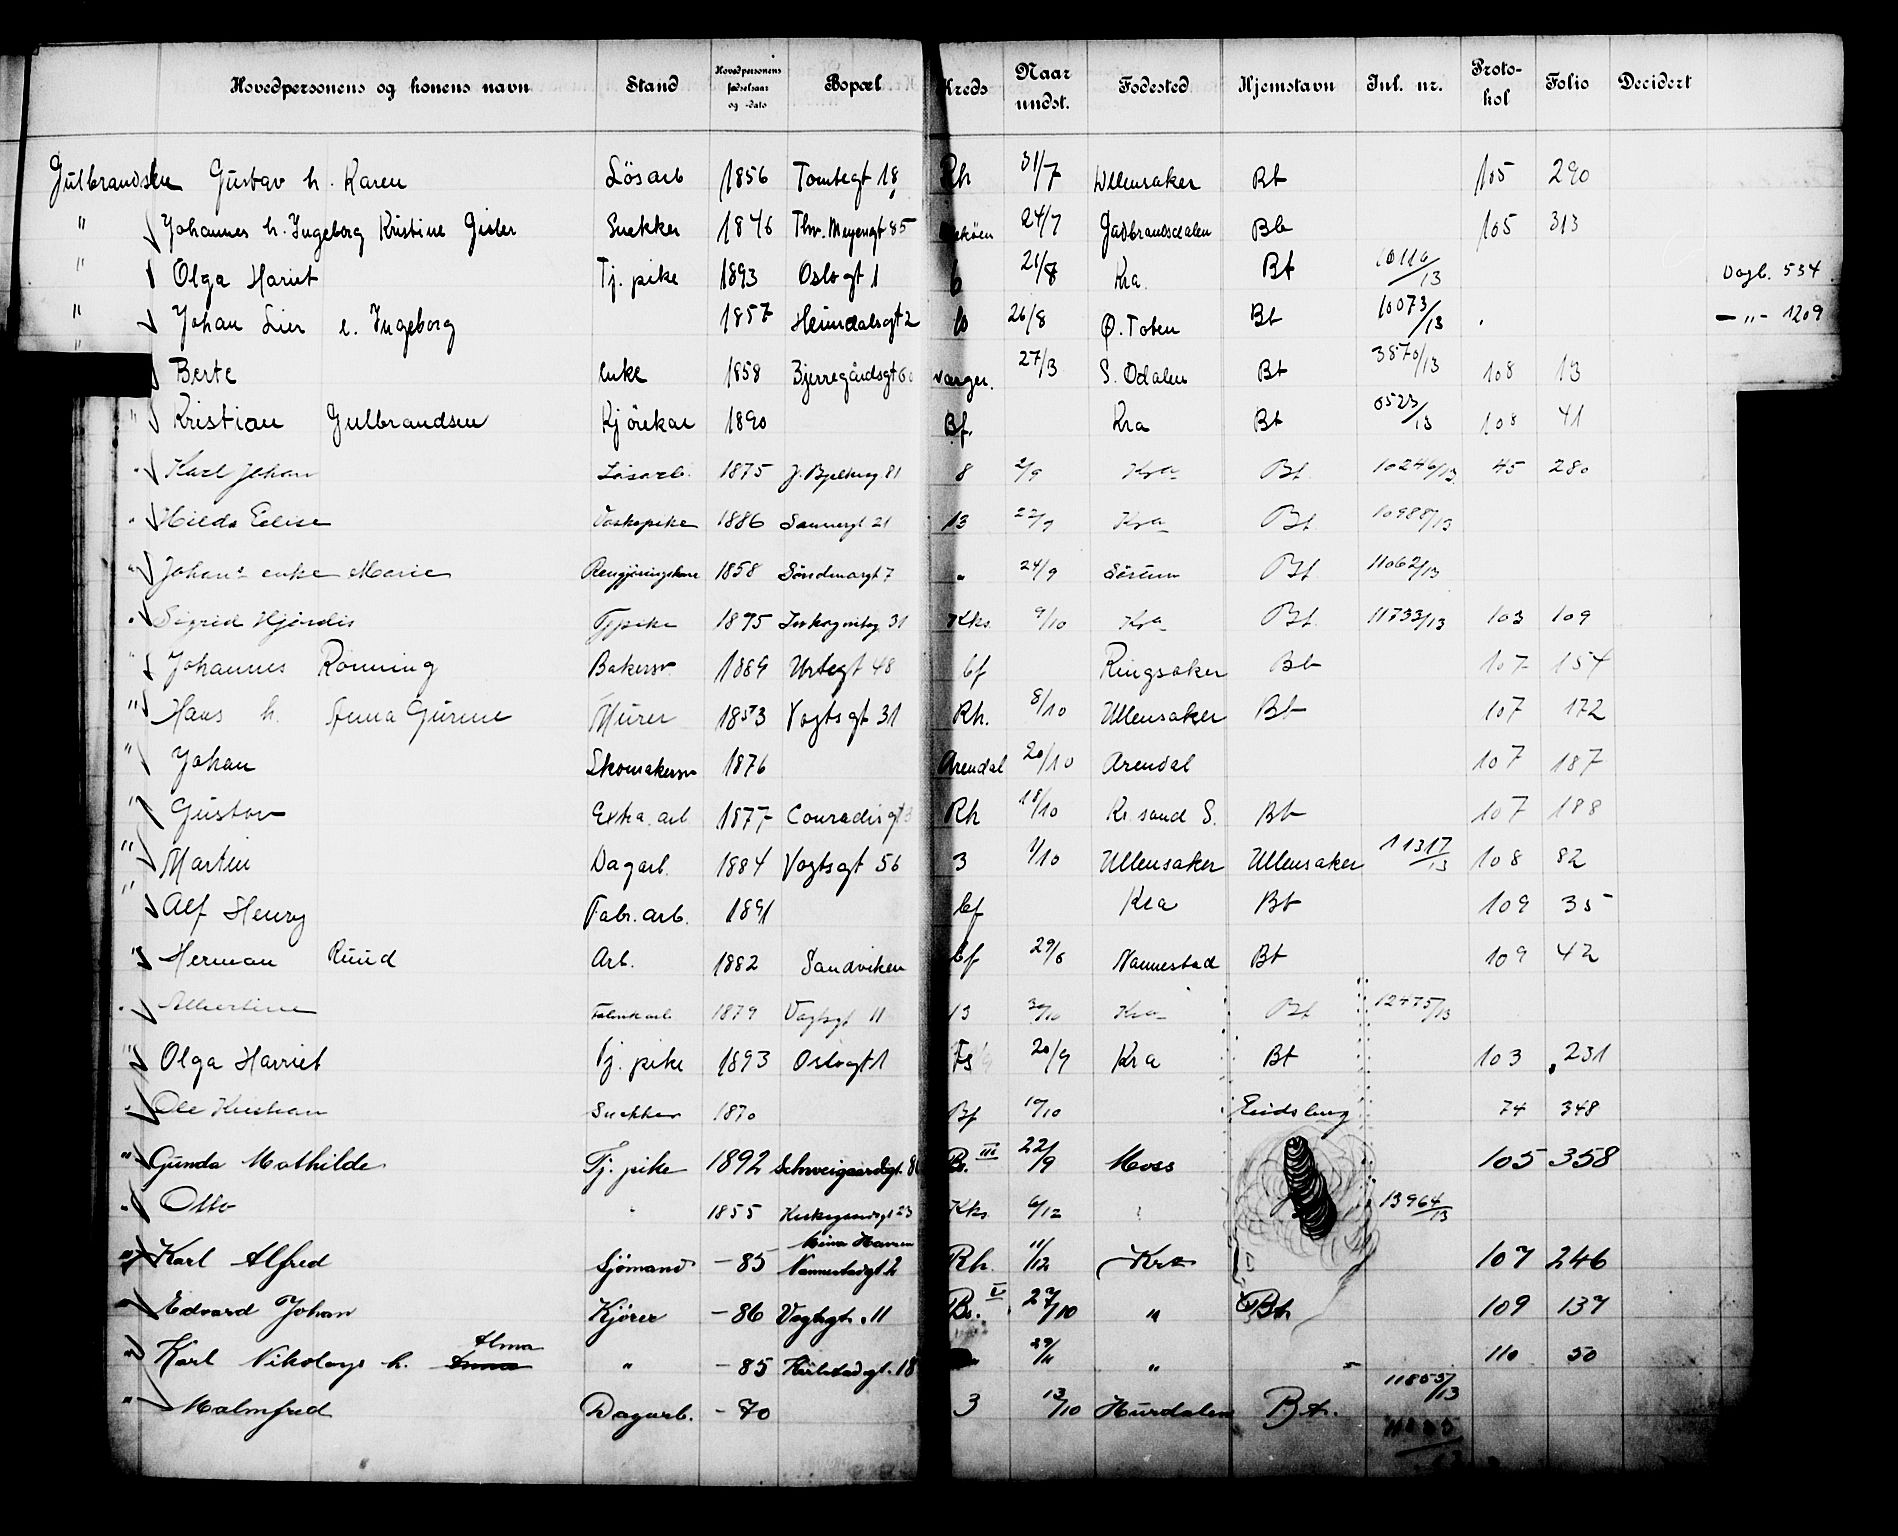 Hovedpersonens og konens navn Stand Hovedpersonens fødselsaar og -dato Bopæl Kreds Naar undst. Fødested Hjemstavn Jnl. nr. Protokol Folio Decidert
Gulbrandsen Gustav h. Karen Lösarb 1856 Tomtegt 18 Rh 31/7 Ullensaker Bt 105 290
" Johannes h. Ingeborg Kristine Gisler Snekker 1846 Thv. Meyersgt 85 24/7 Gudbrandsdalen Bt 105 313
" Olga Hariet Tj. pike 1893 Oslogt 1 6 21/8 Kra. Bt /13 Dagb. 534
" Johan Lier e. Ingeborg 1857 Heimdalsgt 2 10 26/8 Ø. Toten Bt 10073/13 - " - 1209
" Berte enke 1858 Bjerregårdsgt 60 Varger. 27/3 S. Odalen Bt 3870/13 108 13
" Kristian Gulbrandsen Kjörekar 1890 Bf. Kra Bt 0523/13 108 41
" Karl Johan Løsarb. 1875 81 8 2/9 Kra Bt. 10246/13 45 280
" Hilda Elise Vaskepike 1886 Sannergt 21 13 22/9 Kra Bt. 10988/13
" Johans enke Marie Rengjøringskone 1858 Søndmørgt 7 " 24/9 Sørum Bt 11062/13
" Sigrid Hjørdis Tjpike 1895 31 Kks. 9/10 Kra Bt. 11733/13 103 109
" Johannes Rönning Bakersv 1889 Urtegt 48 bf Ringsaker Bt 107 154
" Hans h. Anna Gurine Murer 1853 Vogtsgt 31 Rh. 8/10 Ullensaker Bt 107 172
" Johan Skomakersv 1876 Arendal 20/10 Arendal 107 187
" Gustav Extra. arb 1877 Conradisgt 3 Rh 18/10 Kr. sand S. Bt 107 188
" Martin Dagarb. 1884 Vogtsgt 56 3 1/10 Ullensaker Ullensaker 11317/13 108 82
" Alf Henry Fabr. arb. 1891 bf Kra Bt 109 35
" Herman Ruud Arb. 1882 Sandviken bf 29/8 Nannestad Bt 109 42
" Albertine Fabrikarb. 1879 Vogtsgt 11 13 30/10 Kra Bt 12475/13
" Olga Harriet Tj. pike 1893 Oslogt 1 Fs 20/9 Kra Bt 103 231
" Ole Kristian Snekker 1870 Bf 10/10 Eidsberg 74 348
" Gunda Mathilde Tj. pike 1892 Schweigaardsgt. 8 Bs. III 22/9 Moss 105 358
" Otto " 1855 23 Kks 6/12 13964/13
Mina Hansen
" Karl Alfred Sjømand - 85 Nannestadgt 2 Rh. 11/12 Kra 107 246
" Edvard Johan Kjører - 86 Vogtsgt. 11 Bs. V 27/10 " Bt. 109 137
Alma
" Karl Nikolays h. " - 85 18 29/11 " " 110 50
" Malmfred Dagarb. - 70 3 13/10 Hurdalen Bt. 11855/13